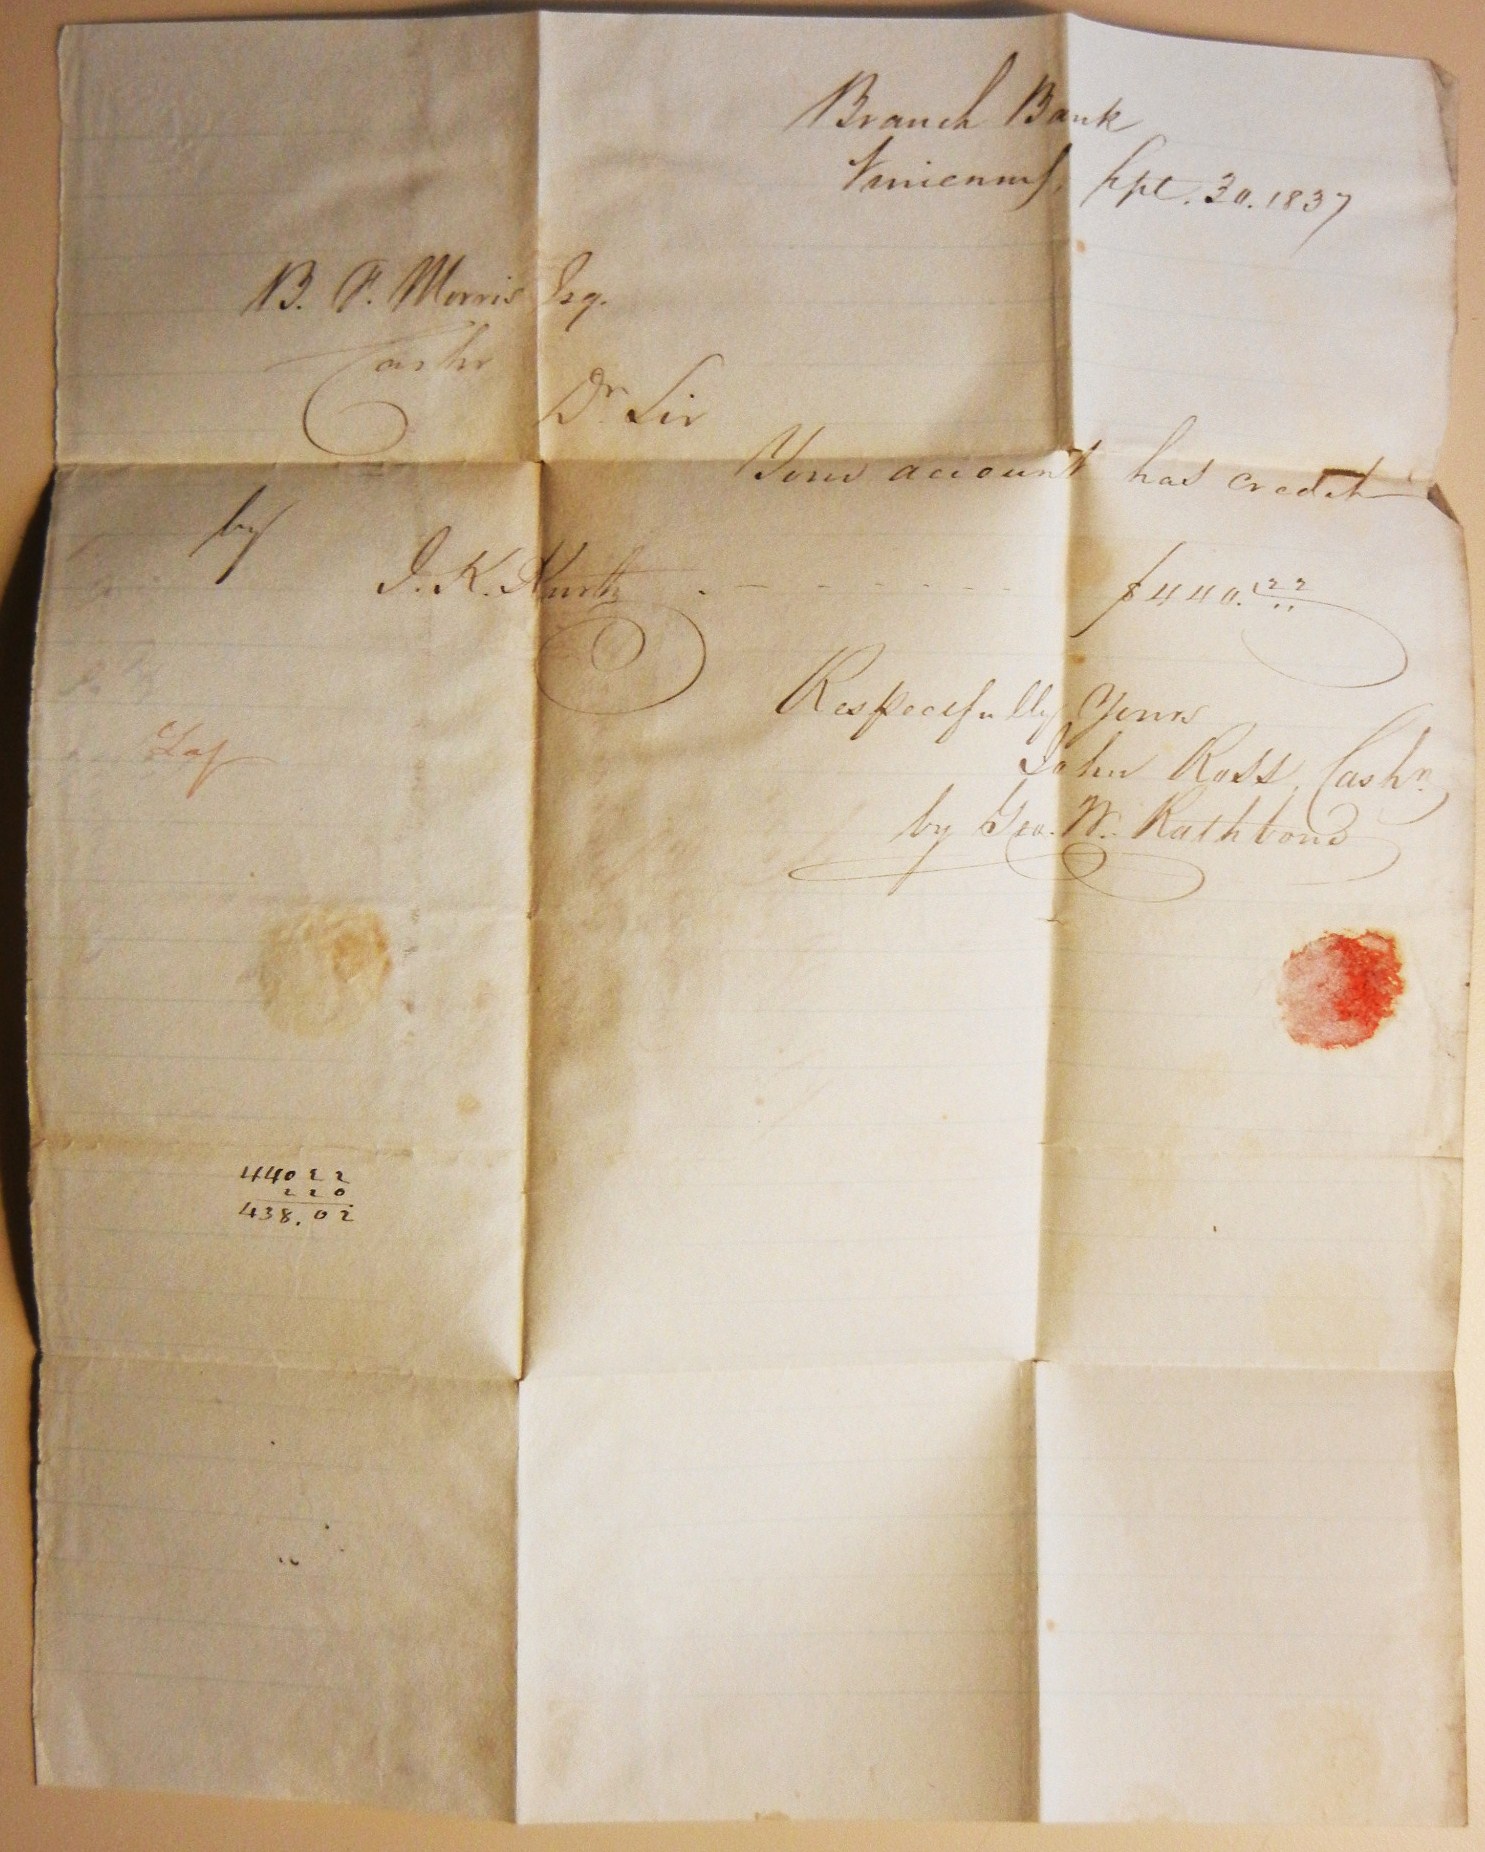 Branch Bank
Vincennes, Sept. 30. 1837
B. F. Morris Esq.
Cashr
Dr Sir
Your account has credit
by
J. K. Kurtz - - - - - - - $440.22
Respectfully Yours
John Ross, Cashr.
by Geo. W. Rathbone
Laf
440 22
2 20
438.02